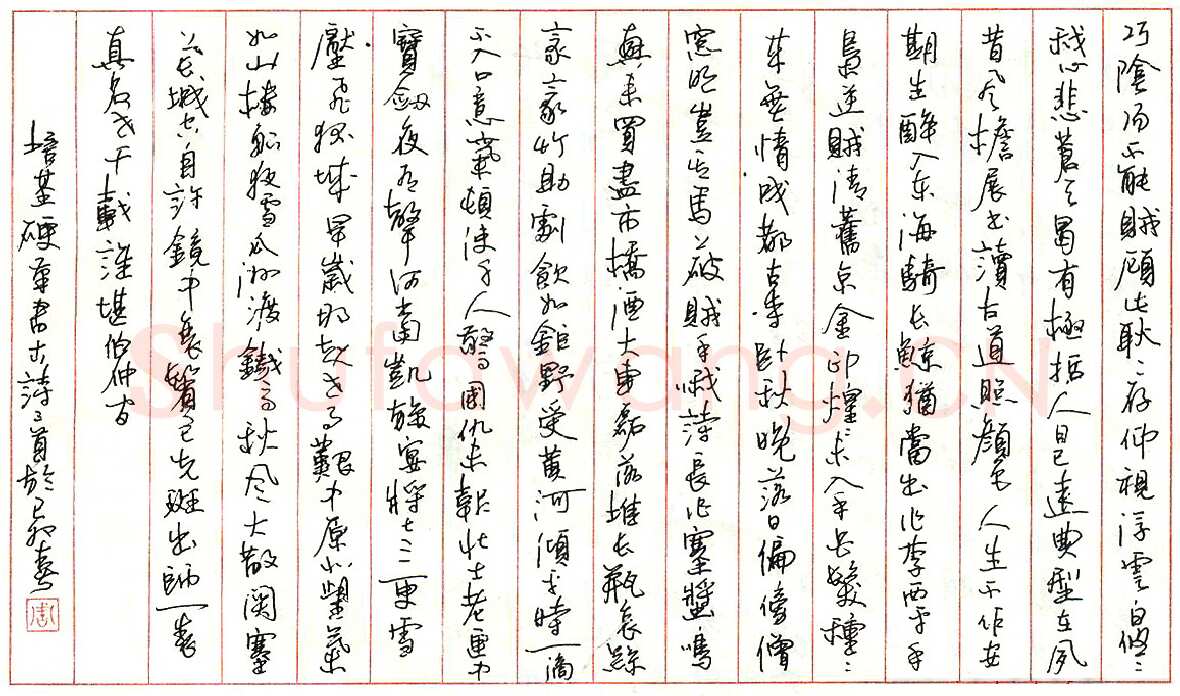 巧陰陽不能賊顧此耿々存仰視浮雲白悠々
我心悲蒼天曷有極括人日已遠典型在夙
昔风檐展书讀古道照顏色 人生不作安
期生醉入东海騎长鯨猶當出作李西平手
梟逆賊清舊京金印煌々未入手白髮種々
来無情成都古寺卧秋晚落日偏傍僧
窓明豈馬破賊手哦詩長作寒螿鳴
興来買盡市橋酒大車磊落堆长瓶哀絲
豪竹助劇飲如鉅野受黄河傾平時一滴
不入口意氣頓使千人驚國仇未報壮士老匣中
寶劔夜有聲何當凱旋宴將士三更雪
壓飛狐城早歲那知世事艱中原北望氣
如山樓船夜雪瓜洲渡鐵馬秋风大散関塞
上长城空自許鏡中衰鬢已先斑出師一表
真名世千載誰堪伯仲間
培基硬筆書古詩三首於己卯春
周
Shufawang.CN